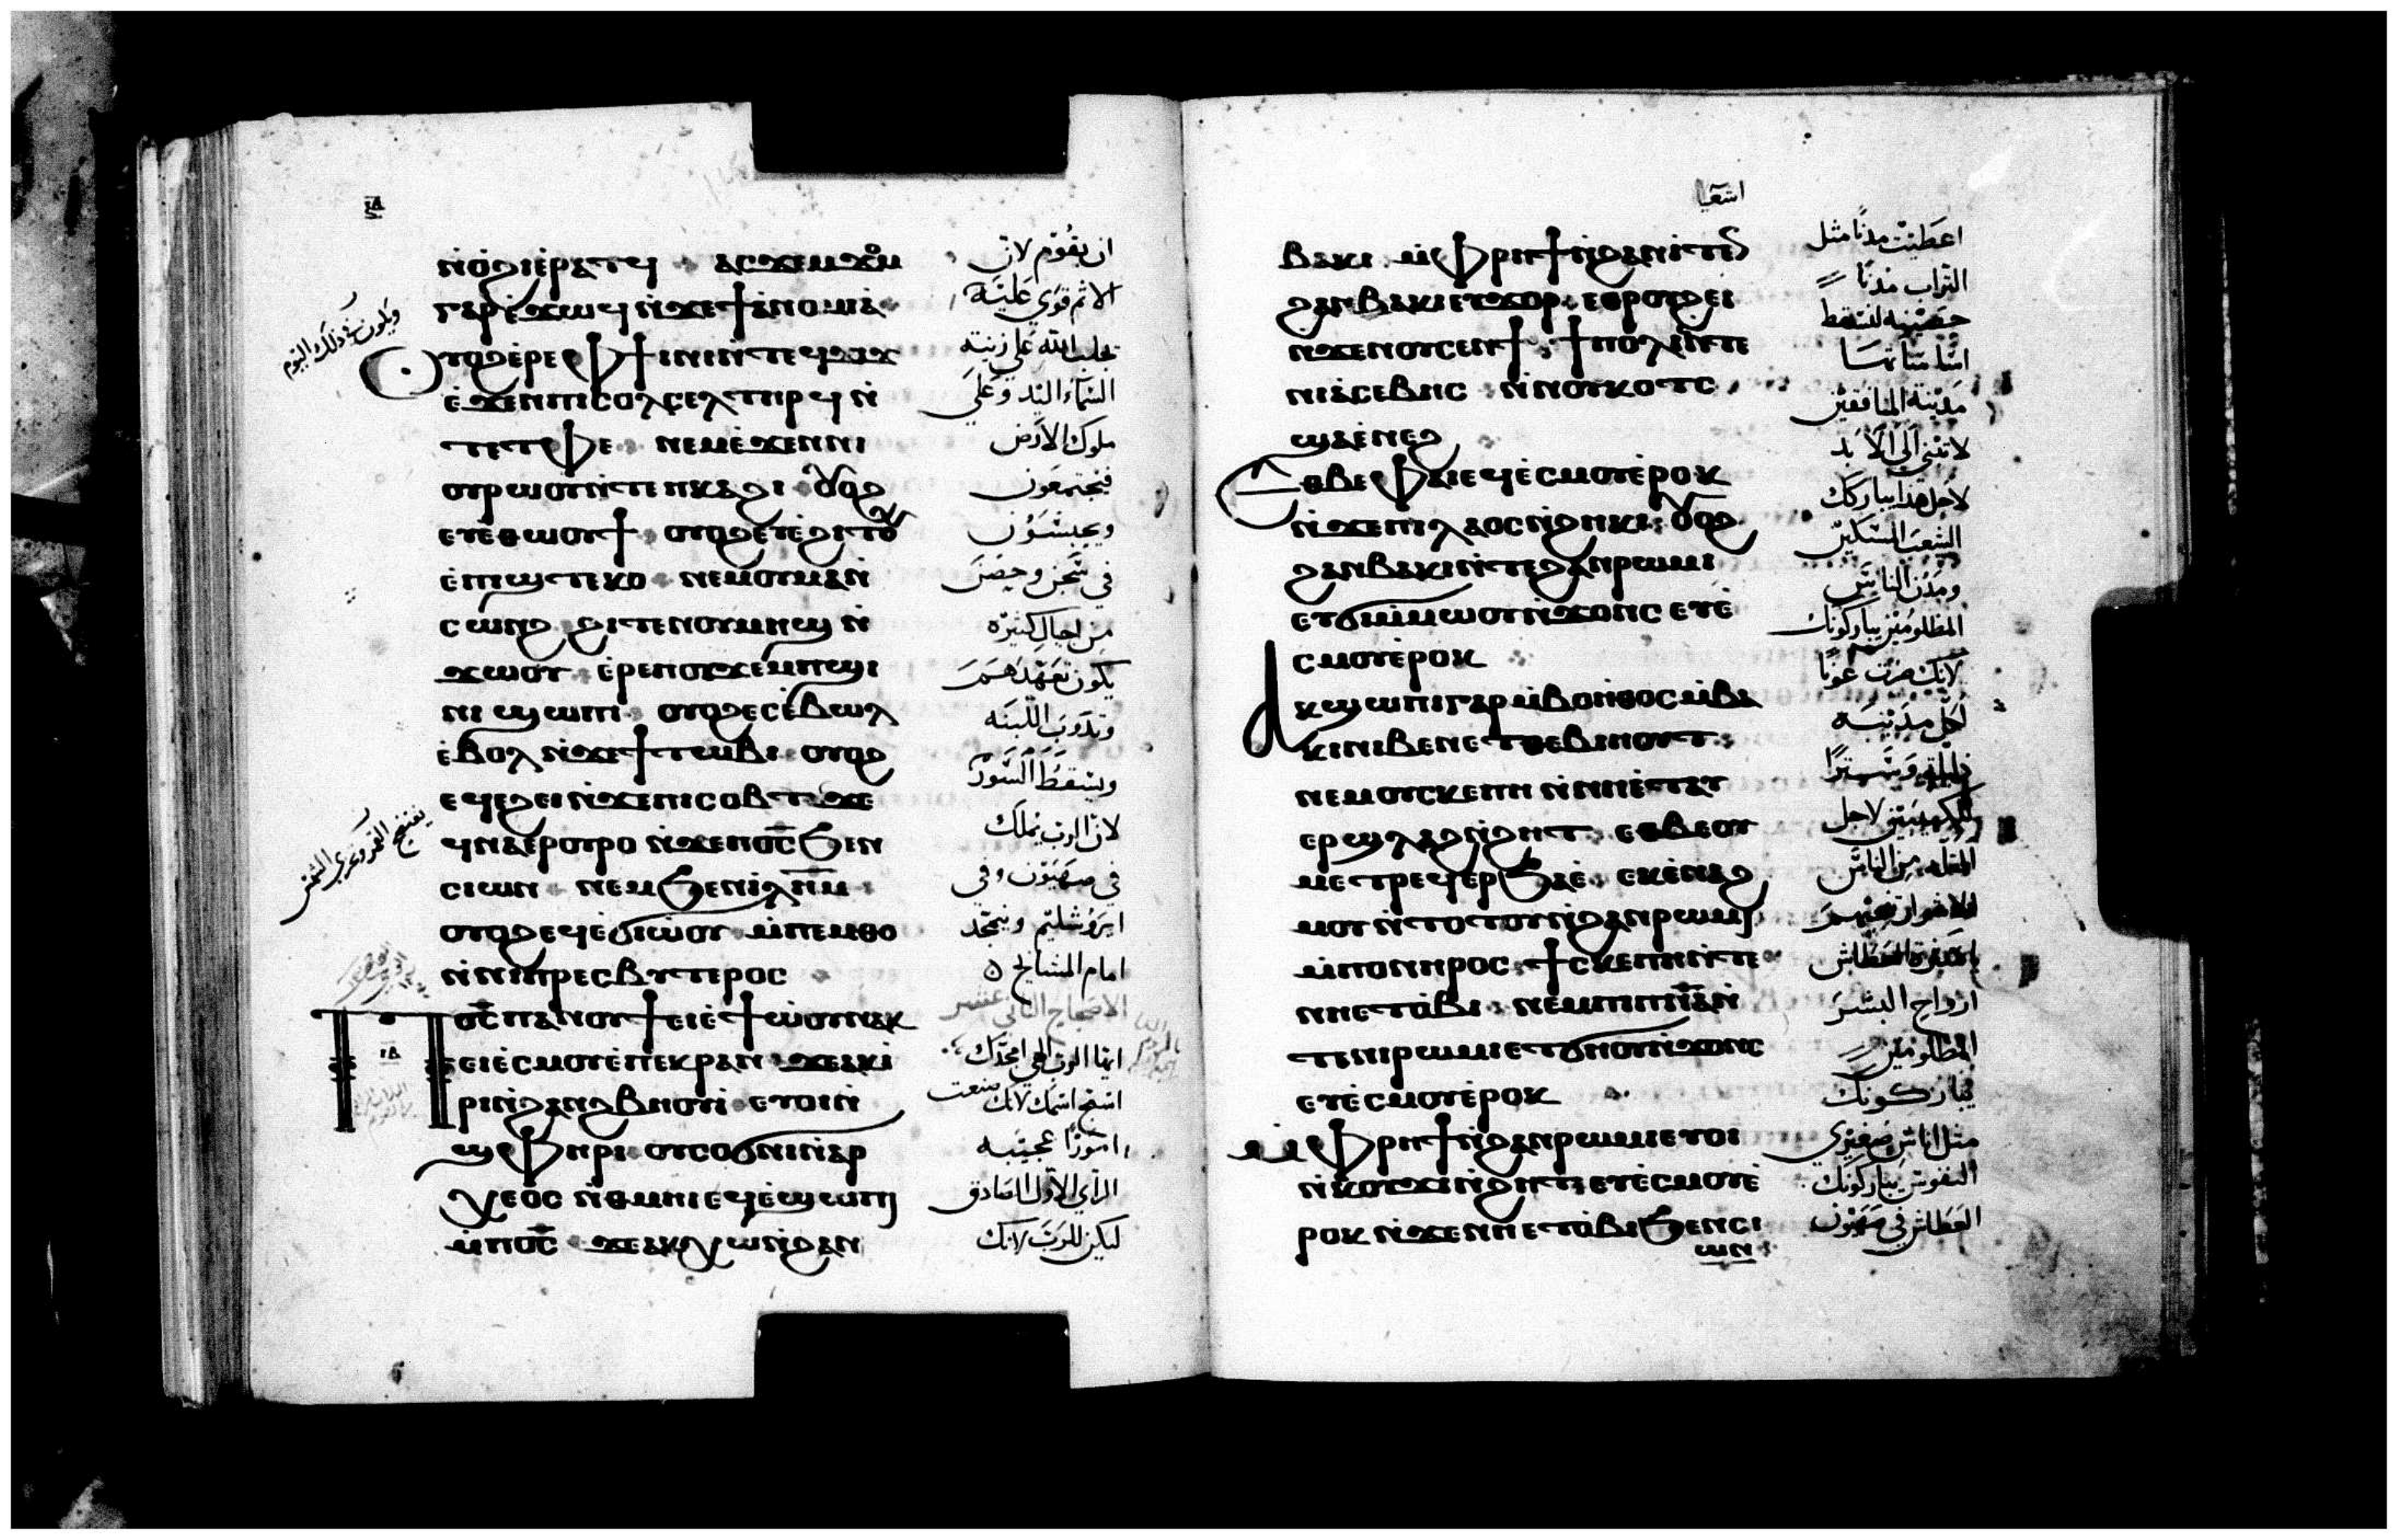 ⲛ̀ⲟ̀ϩⲓⲉ̀ⲣⲁⲧϥ ⲁⲥϫⲉⲙϫⲟⲙ
ⲅⲁⲣⲉ̀ϫⲱϥ ⲛ̀ϫⲉϯⲁ̀ⲛⲟⲙⲓⲁ
ⲟⲩⲟϩⲉ̀ⲣⲉⲫϯⲓⲛⲓⲛ̀ⲧⲉϥϫⲓϫ
ⲉ̀ϫⲉⲛⲡⲓⲥⲟⲗⲥⲉⲗⲧⲏⲣϥ ⲛ̀
ⲧⲉⲧⲫⲉ ⲛⲉⲙⲉ̀ϫⲉⲛⲛⲓ
ⲟⲩⲣⲱⲟⲩⲛ̀ⲧⲉⲡⲕⲁϩⲓ ⲟⲩⲟϩ
ⲉⲩⲉ̀ⲑⲱⲟⲩϯ ⲟⲩⲟϩⲉⲩⲉ̀ϩⲓⲧⲟⲩ
ⲉ̀ⲡϣⲧⲉⲕⲟ ⲛⲉⲙⲟⲩⲙⲁⲛ̀
ⲥⲱⲛϩ ϩⲓⲧⲉⲛⲟⲩⲙⲏϣ ⲛ̀
ϫⲱⲟⲩ ⲉ̀ⲣⲉⲡⲟⲩϫⲉⲙⲡϣⲓ
ⲛⲓ ϣⲱⲡⲓ ⲟⲩⲟϩⲉⲥⲉ̀ⲃⲱⲗ
ⲉ̀ⲃⲟⲗ ⲛ̀ϫⲉϯⲧⲱⲃⲓ ⲟⲩⲟϩ
ⲉϥⲉϩⲉⲓ ⲛ̀ϫⲉⲡⲓⲥⲟⲃⲧ ϫⲉ
ϥⲛⲁⲉⲣⲟⲩⲣⲟ ⲛ̀ϫⲉⲡⲟ̅ⲥ̅ ϧⲉⲛ
ⲥⲓⲱⲛ ⲛⲉⲙϧⲉⲛⲓⲗ̅ⲏ̅ⲙ
ⲟⲩⲟϩⲉϥⲉ̀ϭⲓⲱ̀ⲟⲩ ⲙ̀ⲡⲉⲙⲑⲟ
ⲛ̀ⲛⲓⲡⲣⲉⲥⲃⲩⲧⲉⲣⲟⲥ
ⲡⲟ̅ⲥ̅ ⲡⲁⲛⲟⲩϯ ⲉⲓⲉ̀ϯⲱ̀ⲟⲩⲛⲁⲕ
ⲉⲓⲉ̀ⲥⲙⲟⲩⲉ̀ⲡⲉⲕⲣⲁⲛ ϫⲉⲁⲕⲓ̀
ⲣⲓⲛ̀ϩⲁⲛϩⲃⲏⲟⲩⲓ̀ ⲉⲩⲟⲓⲛ̀
ϣⲫⲏⲣⲓ ⲟⲩⲥⲟϭⲛⲓⲛ̀ⲁⲣ
ⲭⲉⲟⲥ ⲛ̀ⲑⲙⲏⲓ ⲉϥⲉ̀ϣⲱⲡⲓ
ⲙ̀ⲡⲟ̅ⲥ̅ ϫⲉⲁⲕⲭⲱⲛ̀ϩⲁⲛ
ان يقوم لان
الاثم قوي عليه
ويكون في ذلك اليوم
يجلب الله على زينة
السماء اليد وعلى
ملوك الارض
فيجتمعون
ويحبسون
في سجن وحصن
من اجيال كثيره
يكون تعهدهم
وتذوب اللبنه
ويسقط السور
لان الرب يملك
في صهيون وفي
ايروشليم ويتمجد
امام المشايخ
الاصحاح الثاني عشر
ايها الرب الهي امجدك
اسبح اسمك لانك صنعت
امورا عجيبه
الراي الاول الصادق
ليكن للرب لانك
اشعيا
ⲃⲁⲕⲓ ⲙ̀ⲫⲣⲏϯⲛ̀ϩⲁⲛⲓⲧⲉⲛ
ϩⲁⲛⲃⲁⲕⲓⲉⲩϫⲟⲣ ⲉⲑⲣⲟⲩϩⲉⲓ
ⲛ̀ϫⲉⲛⲟⲩⲥⲉⲛϯ ϯⲡⲟⲗⲓⲛ̀ⲧⲉ
ⲛⲓⲁ̀ⲥⲉⲃⲏⲥ ⲛ̀ⲛⲟⲩⲕⲟⲧⲥ
ϣⲁⲉ̀ⲛⲉϩ
ⲉⲑⲃⲉⲫⲁⲓⲉϥⲉ̀ⲥⲙⲟⲩⲉ̀ⲣⲟⲕ
ⲛ̀ϫⲉⲡⲓⲗⲁⲟⲥⲛ̀ϩⲏⲕⲓ ⲟⲩⲟϩ
ϩⲁⲛⲃⲁⲕⲓⲛ̀ⲧⲉϩⲁⲛⲣⲱⲙⲓ
ⲉⲧϭⲓⲙ̀ⲙⲱⲟⲩⲛ̀ϫⲟⲛⲥ ⲉⲩⲉ̀
ⲥⲙⲟⲩⲉ̀ⲣⲟⲕ
ⲁⲕϣⲱⲡⲓⲅⲁⲣ ⲙ̀ⲃⲟⲏⲑⲟⲥ ⲙ̀ⲃⲁ
ⲕⲓⲛⲓⲃⲉⲛⲉⲧⲑⲉⲃⲓⲏⲟⲩⲧ
ⲛⲉⲙⲟⲩⲥⲕⲉⲡⲏ ⲛ̀ⲛⲏⲉ̀ⲧⲁⲩ
ⲉⲣϣⲗⲁϩⲛ̀ϩⲏⲧ ⲉⲑⲃⲉⲟⲩ
ⲙⲉⲧⲣⲉϥⲉⲣϧⲁⲉ̀ ⲉⲕⲉ̀ⲛⲁϩ
ⲙⲟⲩ ⲛ̀ⲧⲟⲧⲟⲩⲛ̀ϩⲁⲛⲣⲱⲙⲓ
ⲙ̀ⲡⲟⲛⲏⲣⲟⲥ ϯⲥⲕⲉⲡⲏⲛ̀ⲧⲉ
ⲛⲏⲉⲧⲟⲃⲓ ⲛⲉⲙⲡⲓⲡ̅ⲛ̅ⲁ̅ⲛ̀
ⲧⲉⲛⲓⲣⲱⲙⲓⲉⲧϭⲏⲟⲩⲛ̀ϫⲟⲛⲥ
ⲉⲩⲉ̀ⲥⲙⲟⲩⲉ̀ⲣⲟⲕ
ⲙ̀ⲫⲣⲏϯⲛ̀ϩⲁⲛⲣⲱⲙⲓⲉⲩⲟⲓ
ⲛ̀ⲕⲟⲩϫⲓⲛ̀ϩⲏⲧ ⲉⲩⲉ̀ⲥⲙⲟⲩⲉ̀
ⲣⲟⲕ ⲛ̀ϫⲉⲛⲏⲉⲧⲟⲃⲓϧⲉⲛⲥⲓ
ⲱⲛ
اعطيت مدنا مثل
التراب مدنا
حصينه لتسقط
اساساتها
مدينة المنافقين
لا تبنى الى الابد
لاجل هذا يباركك
الشعب المسكين
ومدن الناس
المظلومين يباركونك
لانك صرت عونا
لكل مدينه
ذليلة وسترا
ارواح البشر
المظلومين
يباركونك
مثل اناس صغيري
النفوس يباركونك
العطاش في صهيون